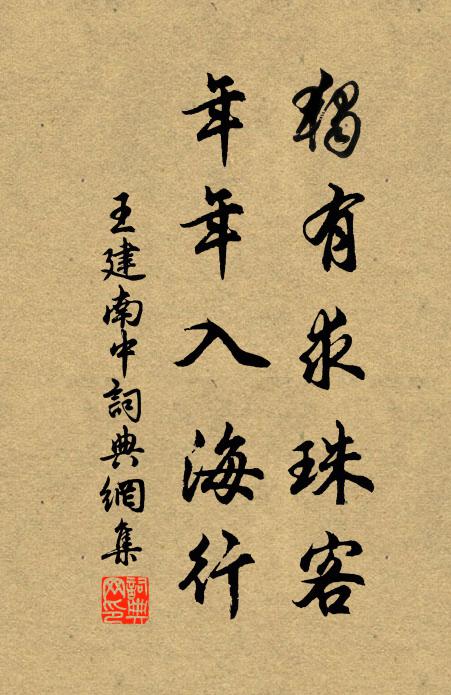 獨有求珠客
年年入海行
王建南中詞典網集
詞典网印